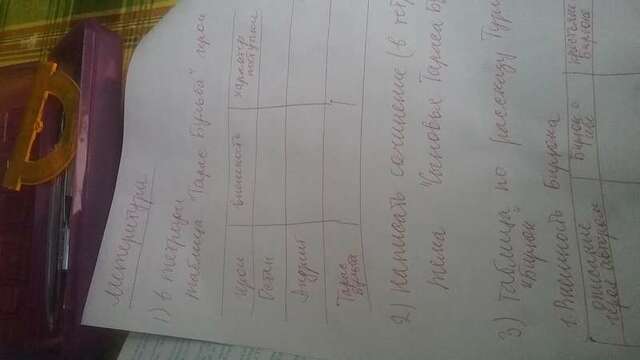 Литература
1) в тетради
таблица "Тарас Бульба" герои
герои внешность характер поступки
Остап
Андрий
Тарас Бульба
2) Написать сочинение (в тет
тема "Сыновья Тараса Бу
3) Таблица по рассказу Тург
"Бирюк"
1. Внешность Бирюка
описание героя автором Бирюк о себе крестьяне Бирюке